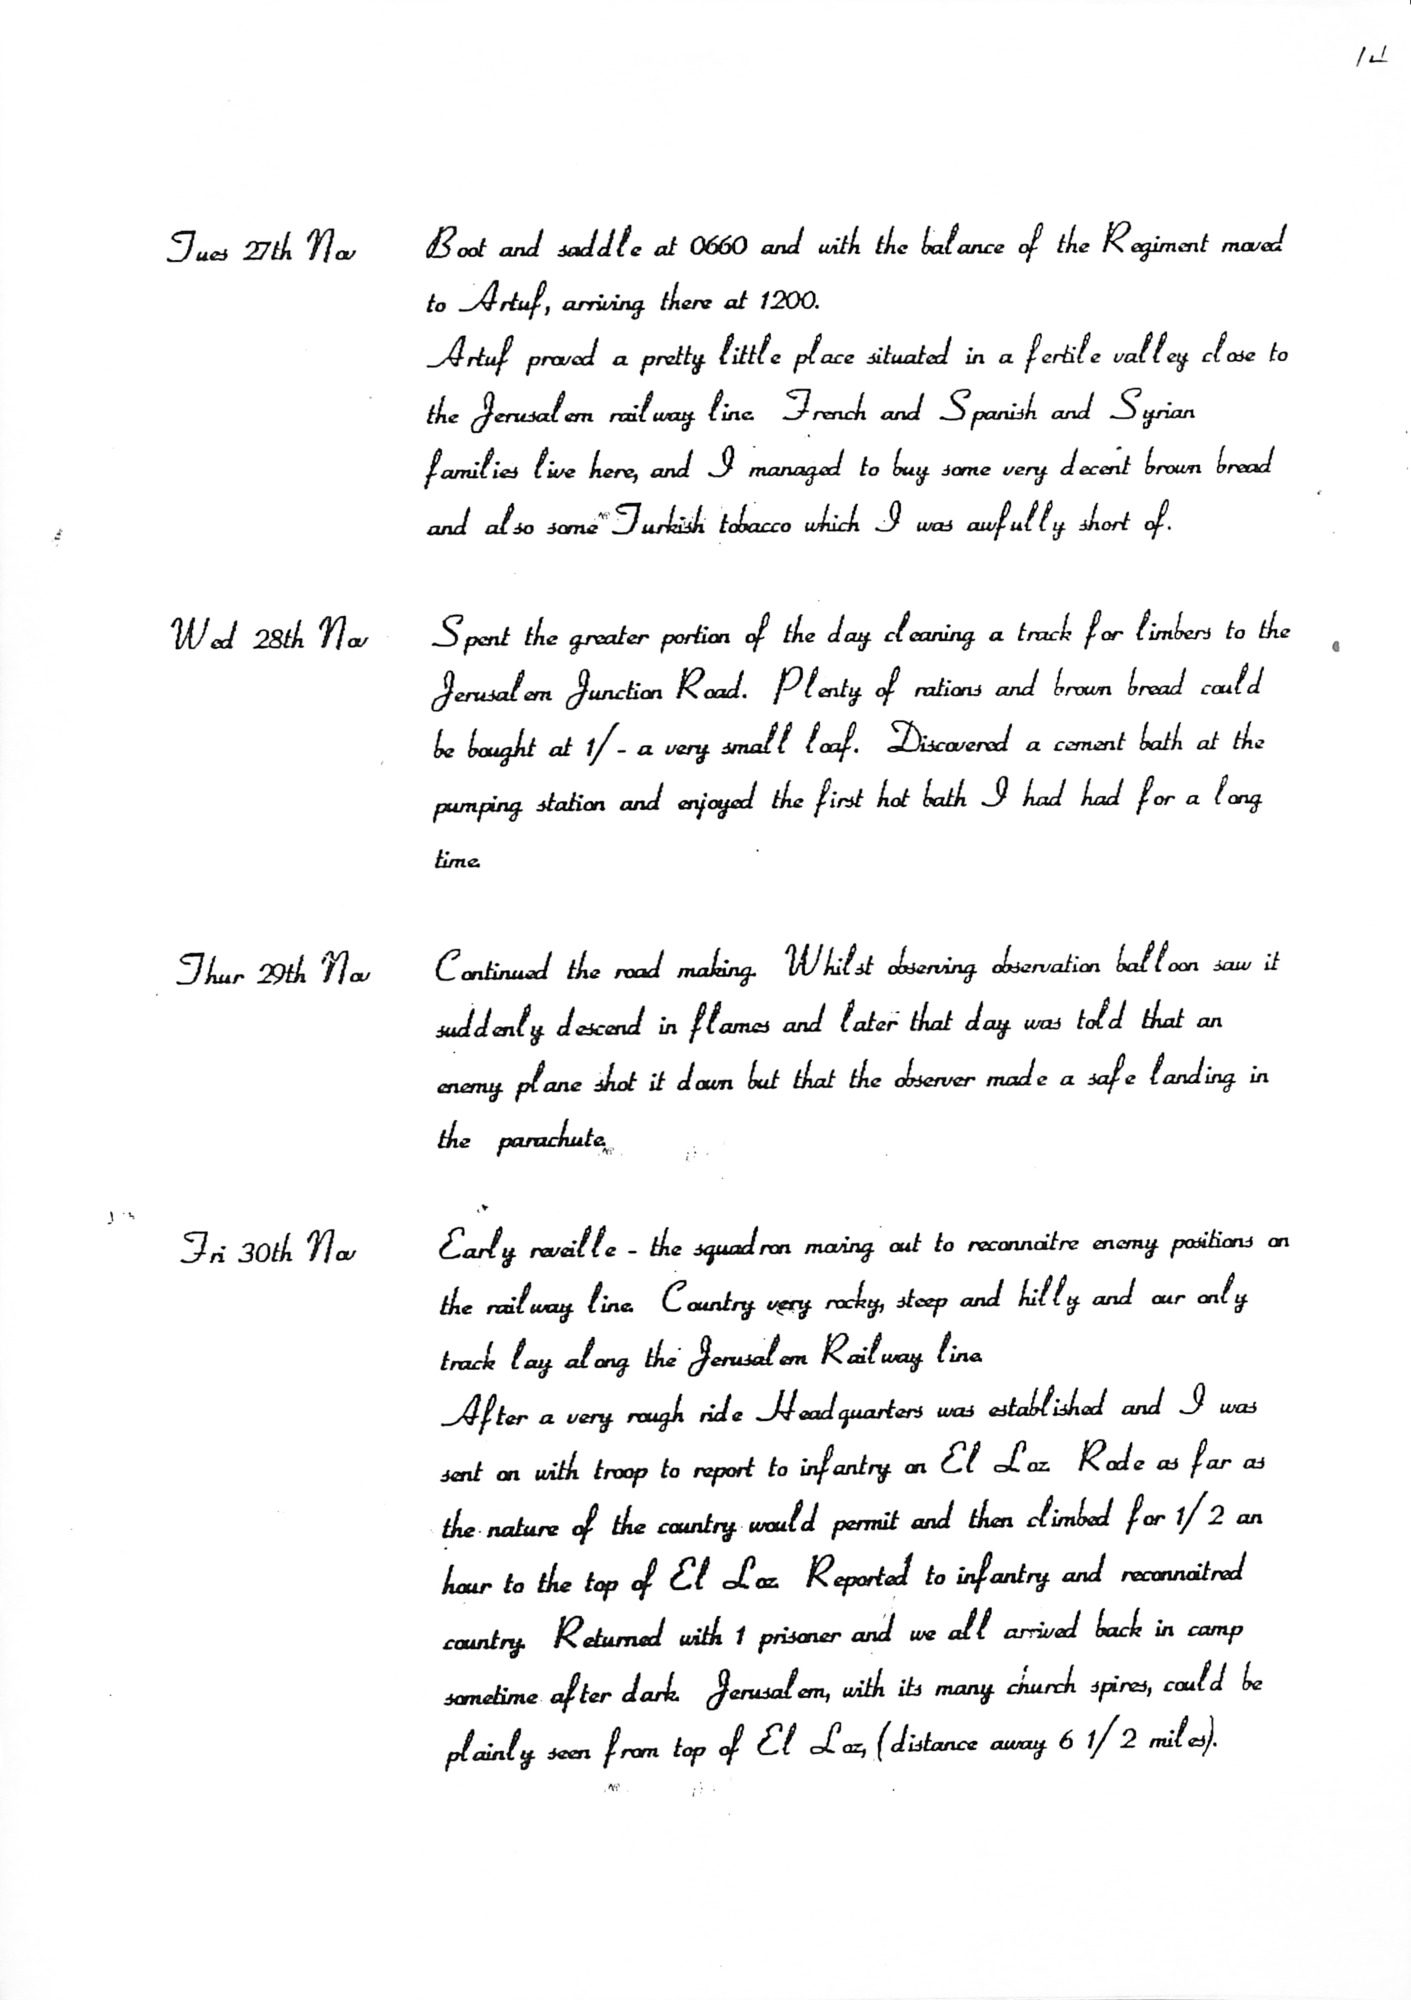 14
Tues 27th Nov Boot and saddle at 0660 and with the balance of the Regiment moved
to Artuf, arriving there at 1200.
Artuf proved a pretty little place situated in a fertile valley close to
the Jerusalem railway line. French and Spanish and Syrian
families live here, and I managed to buy some very decent brown bread
and also some Turkish tobacco which I was awfully short of.
Wed 28th Nov Spent the greater portion of the day cleaning a track for limbers to the
Jerusalem Junction Road. Plenty of rations and brown bread could
be bought at 1/- a very small loaf. Discovered a cement bath at the
pumping station and enjoyed the first hot bath I had had for a long
time.
Thur 29th Nov Continued the road making. Whilst observing observation balloon saw it
suddenly descend in flames and later that day was told that an
enemy plane shot it down but that the observer made a safe landing in
the parachute.
Fri 30th Nov Early reveille - the squadron moving out to reconnoitre enemy positions on
the railway line. Country very rocky, steep and hilly and our only
track lay along the Jerusalem Railway line.
After a very rough ride Headquarters was established and I was
sent on with troop to report to infantry on El Loz. Rode as far as
the nature of the country would permit and then climbed for 1/2 an
hour to the top of El Loz. Reported to infantry and reconnoitred
country. Returned with 1 prisoner and we all arrived back in camp
sometime after dark. Jerusalem, with its many church spires, could be
plainly seen from top of El Loz, (distance away 6 1/2 miles).